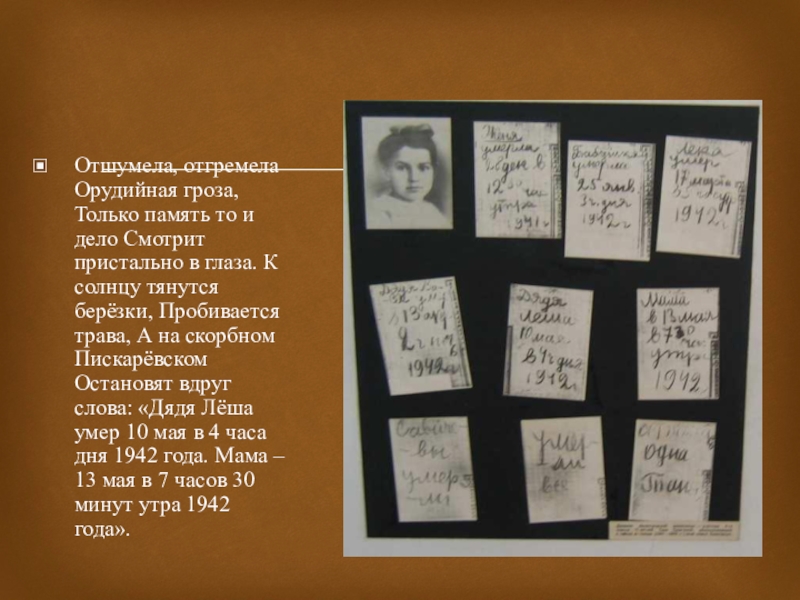 Отшумела, отгремела
Орудийная гроза,
Только память то и
дело Смотрит
пристально в глаза. К
солнцу тянутся
берёзки, Пробивается
трава, А на скорбном
Пискарёвском
Остановят вдруг
слова: «Дядя Лёша
умер 10 мая в 4 часа
дня 1942 года. Мама –
13 мая в 7 часов 30
минут утра 1942
года».
Женя
умерла
28 дек в
12 30 час
утра
1941 г
Бабушка
умерла
25 янв
3 ч. дня
1942 г
Лека
умер
17 марта
1942 г
Дядя
13 апр
2 ч
1942 г
Дядя
Леша
10 мая
в 4 ч дня
1942 г
Мама
в 13 мая
в 7 30
час
утра
1942 г
Савиче
вы
умер
ли
умер
ли
все
одна
Таня